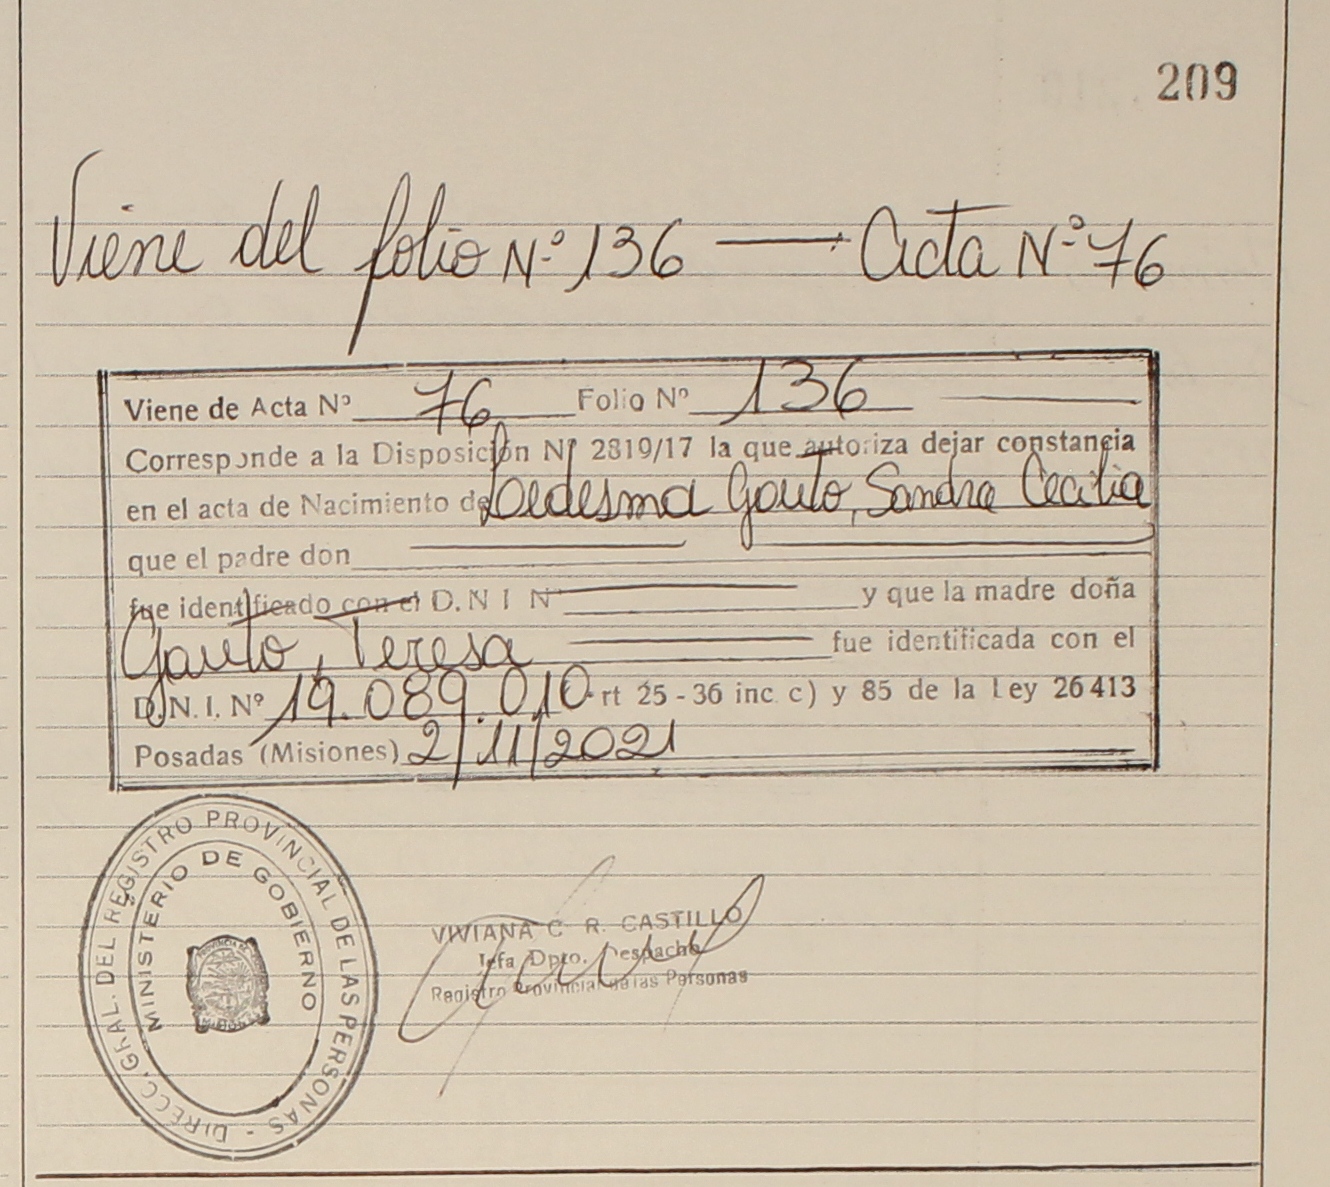 209
Viene del folio Nº 136 — Acta Nº 76
Viene de Acta Nº 76 Folio Nº 136
Corresponde a la Disposición Nº 2819/17 la que autoriza dejar constancia
en el acta de Nacimiento de Ledesma Gauto, Sandra Cecilia
que el padre don
fue identificado con el D.N I Nº y que la madre doña
Gauto, Teresa fue identificada con el
D.N.I. Nº 19.089.010 rt 25-36 inc. c) y 85 de la Ley 26413
Posadas (Misiones) 2/11/2021
DIRECC. GRAL. DEL REGISTRO PROVINCIAL DE LAS PERSONAS -
MINISTERIO DE GOBIERNO
VIVIANA C. R. CASTILLO
Jefa Dpto. Despacho
Registro Provincial de las Personas